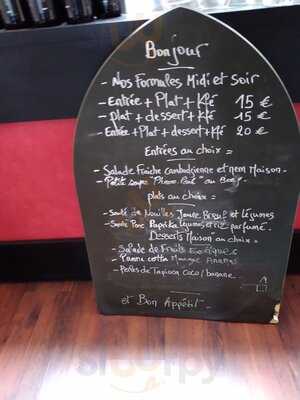 Bonjour
- Nos Formules Midi et Soir
- Entrée + Plat + Kfé 15 €
- plat + dessert + Kfé 15 €
- Entrée + Plat + dessert + Kfé 20 €
Entrées au choix =
- Salade Fraîche cambodgienne et nem Maison.
- Petite soupe au Bœuf
plats au choix =
- Sauté de Nouilles Jaune Bœuf et Légumes
- Sauté Porc Paprika Légumes et riz parfumé.
Desserts Maison au choix =
- Salade de Fruits Exotiques
- Panna cotta Mangue Ananas
- Perles de Tapioca Coco/banane
et Bon Appétit